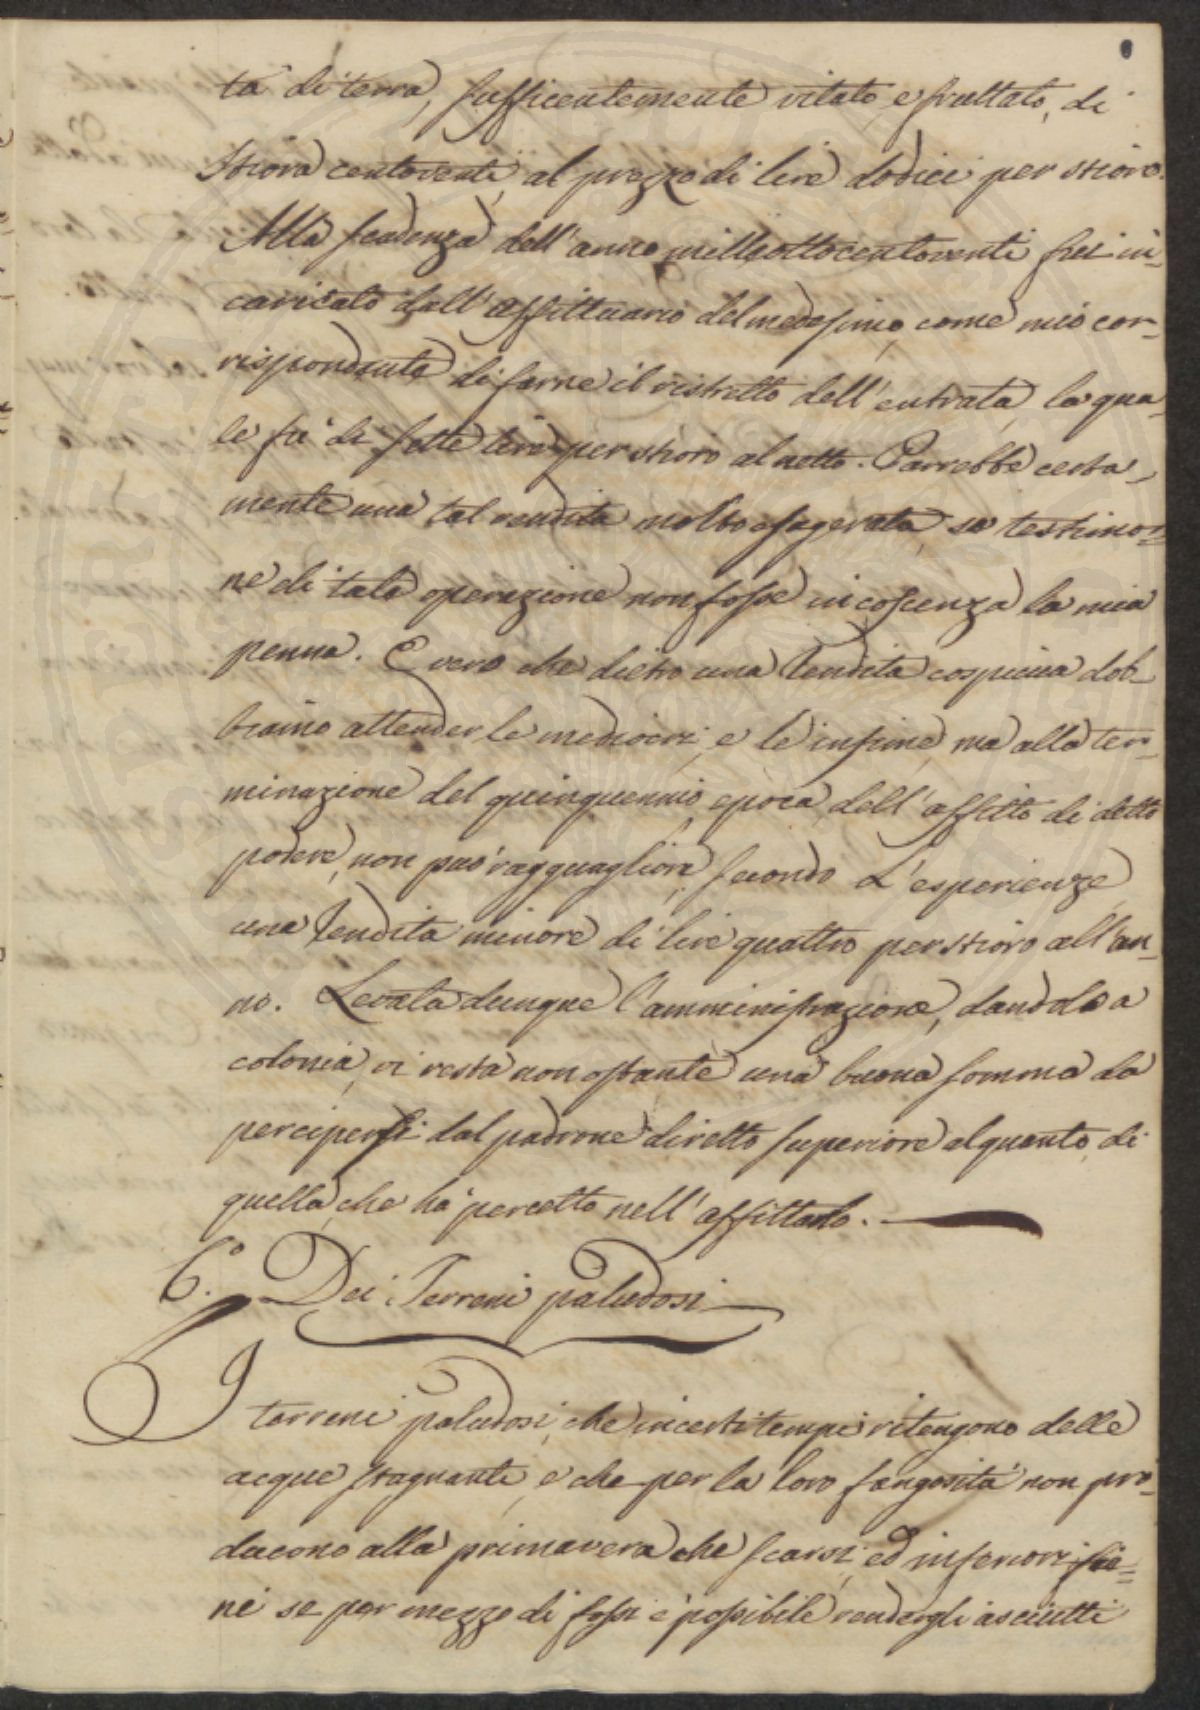 tà di terra, sufficentemente vitato, e fruttato, di
Stiora centoventi, al prezzo di lire dodici per stioro.
Alla scadenza dell'anno milleottocentoventi fui in-
caricato dall'affittuario del medesimo, come mio cor-
rispondente di farne il ristretto dell'entrata, la qua-
le fù di sette lire per stioro al netto. Parrebbe certa-
mente una tal rendita molto esagerata, se testimo=
ne di tale operazione non fosse in coscenza la mia
penna. È vero che dietro una Rendita cospicua dob-
biamo attender le mediocri, e le infime, ma alla ter-
minazione del quinquennio, epoca dell'affitto di detto
podere, non può ragguagliare, secondo L'esperienze,
una Rendita minore di lire quattro per stioro all'an-
no. Levata dunque l'amministrazione, dandolo a
colonia, vi resta non ostante una buona somma da
percipersi dal padrone diretto superiore alquanto, di
quella, che hà percetto nell'affittarlo.
6.° Dei Terreni paludosi
I terreni paludosi, che in certi tempi ritengono delle
acque stagnanti, e che per la loro fangosità non pro-
ducono alla primavera che scarsi, ed inferiori fie=
ni se per mezzo di fossi è possibile rendergli asciutti